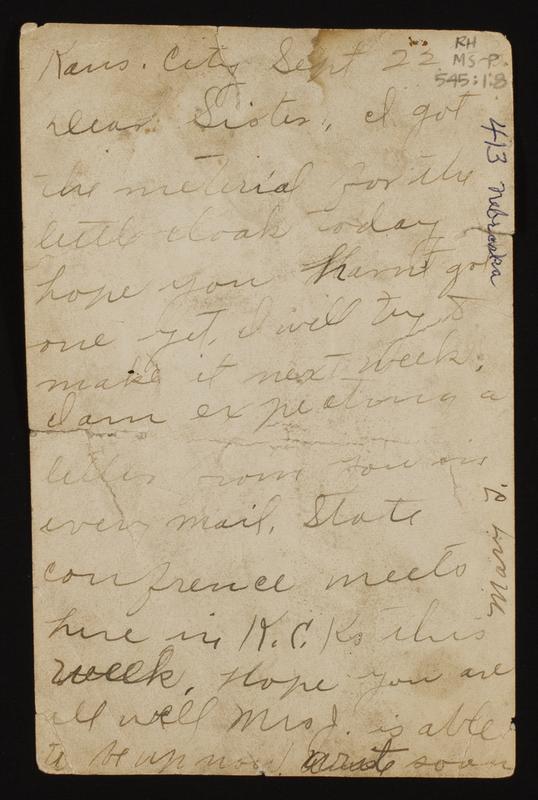 Kans. City Sept 22
RH
MS-P
545:1.8
Dear Sister, I got
the meterial for the
little cloak today
hope you havnt got
one yet, I will try to
make it next week.
I am expecting a
letter from you in
every mail. State
confrence meets
here in K.C. Ks this
week. Hope you are
all well Mrs J. is able
to be up now write soon
413 Nebraska
Mary L.